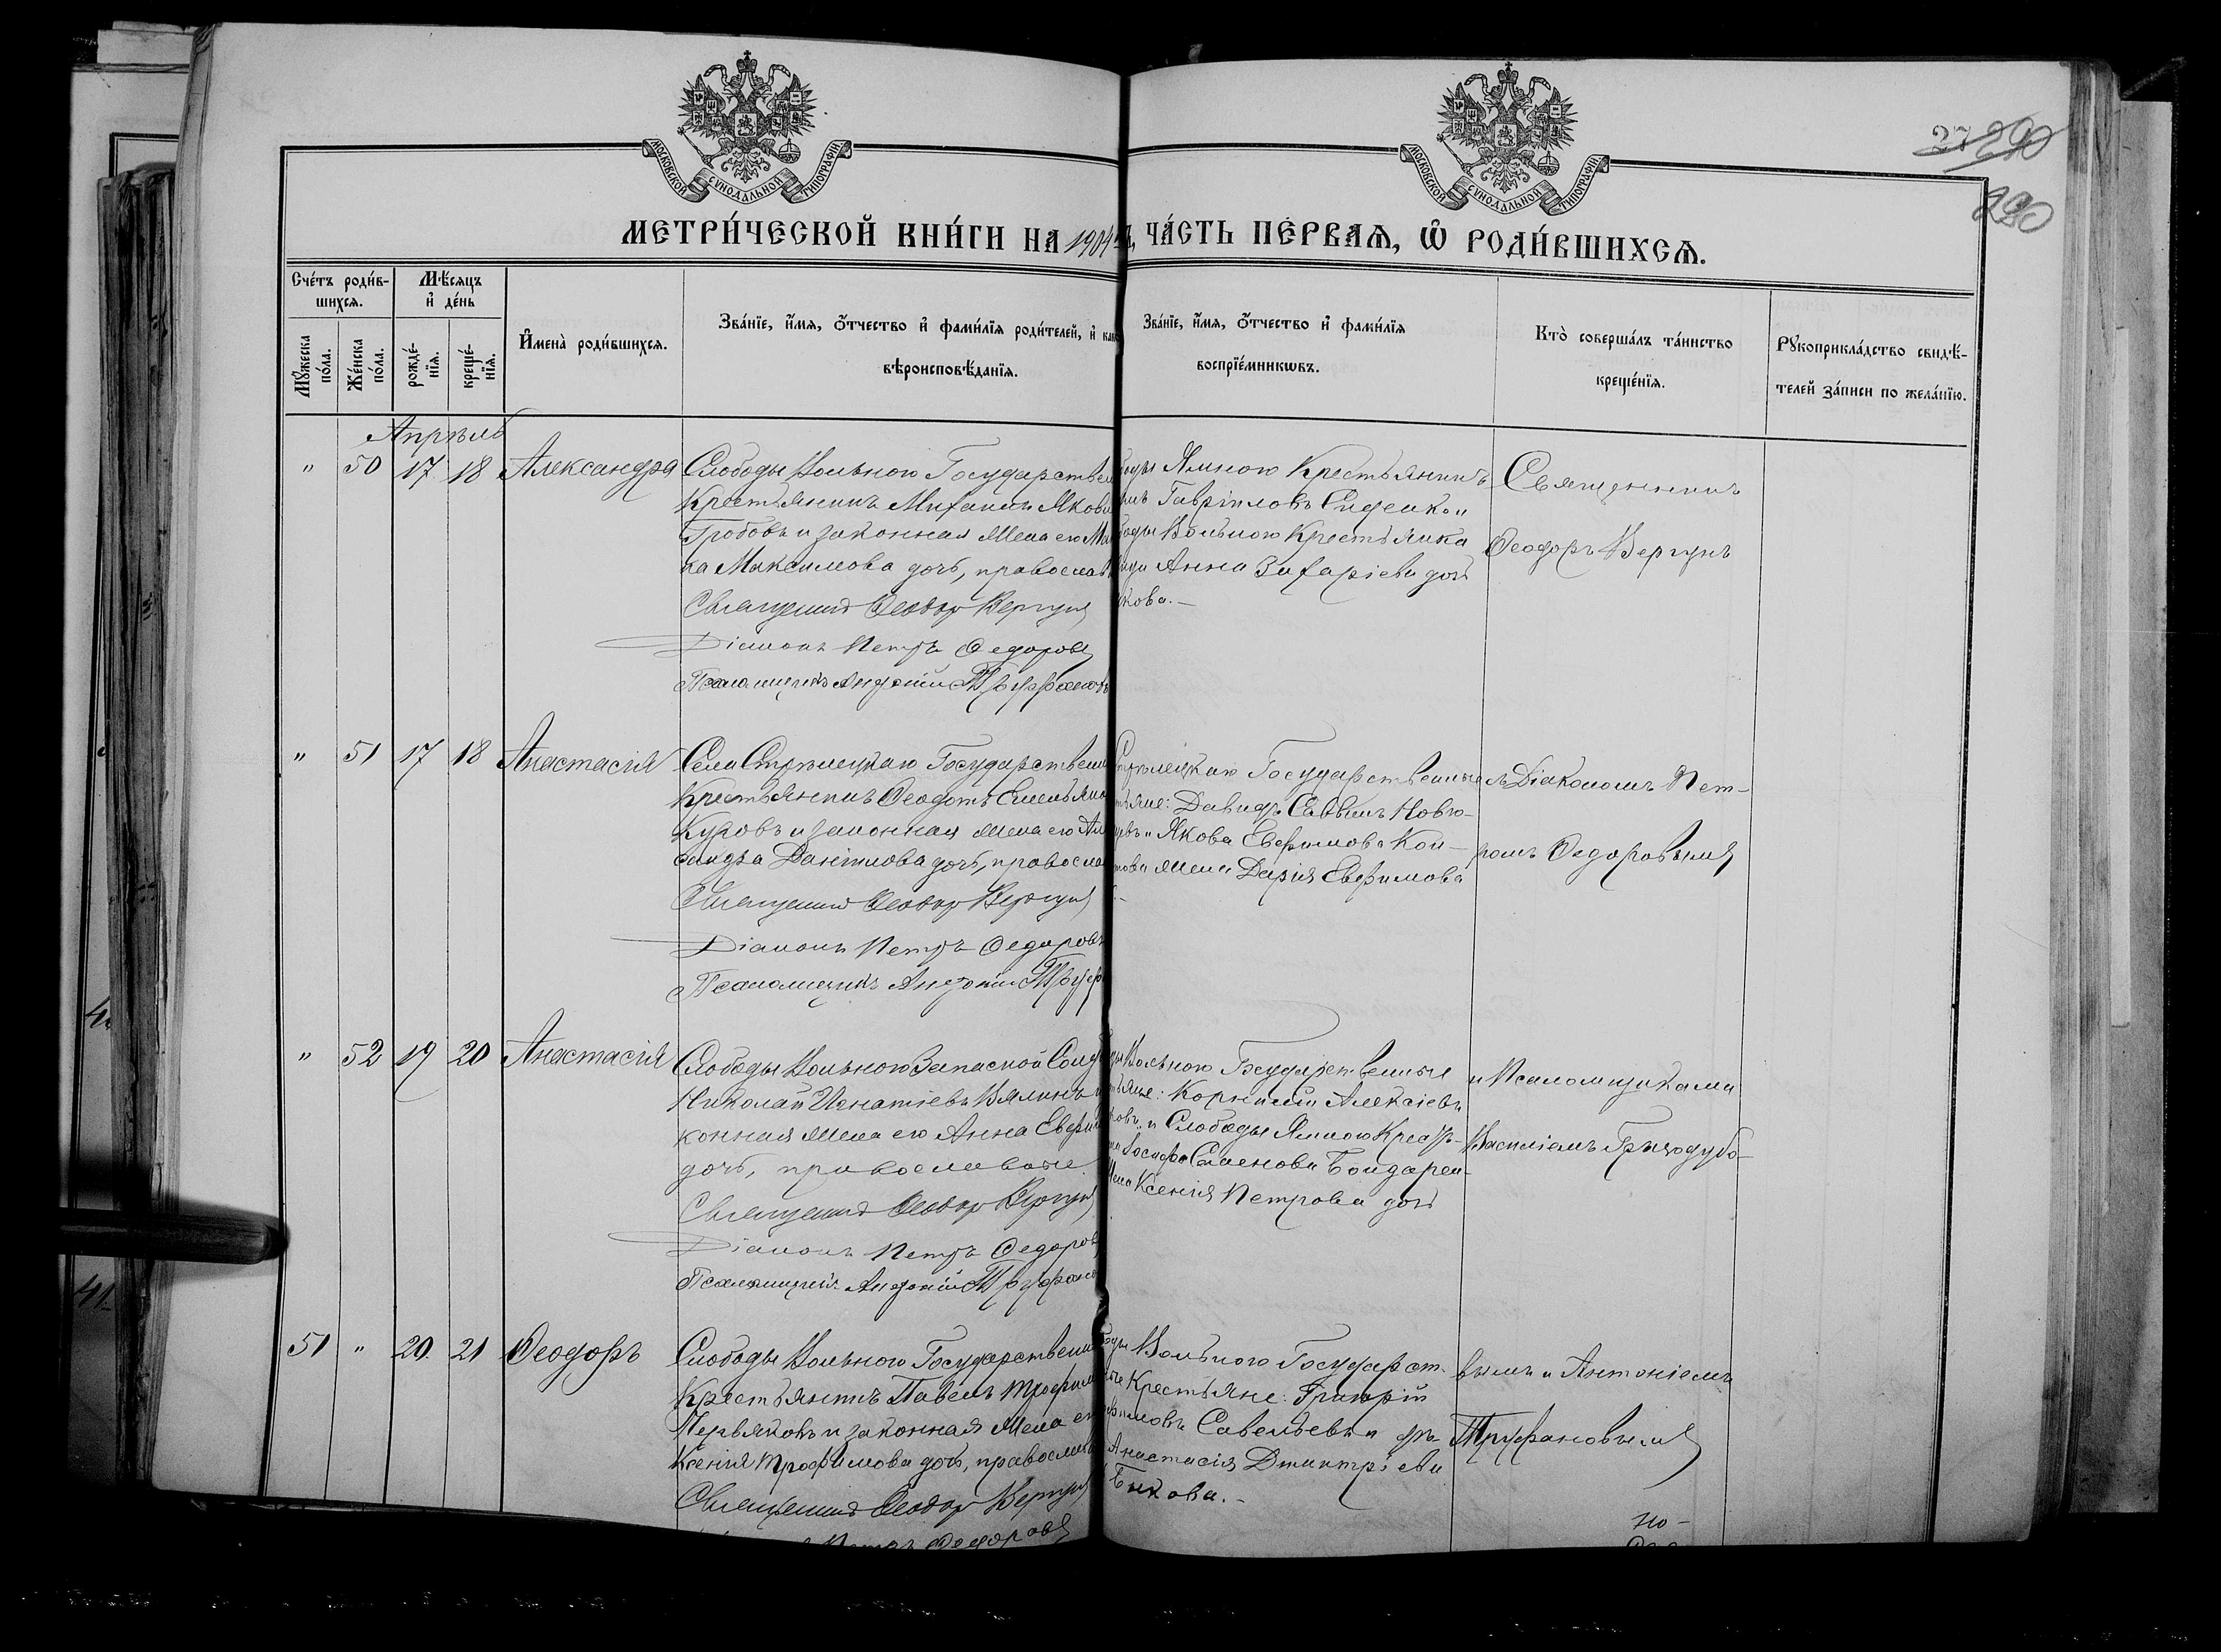 МОСКОВСКОЙ СѴНОДАЛЬНОЙ ТИПОГРАФІИ
МОСКОВСКОЙ СѴНОДАЛЬНОЙ ТИПОГРАФІИ
27 290
290
МЕТРИ́ЧЕСКОЙ КНИ́ГИ НА 1904 ЧА́СТЬ ПЕ́РВАѦ, Ѡ҆ РОДИ́ВШИХСѦ.
Сче́тъ роди́в-
шихсѧ.
Мѣ́сѧцъ
и҆ де́нь
Мꙋ́жеска
по́ла.
Же́нска
по́ла.
рожде́-
нїѧ.
креще́-
нїѧ.
И҆мена̀ роди́вшихсѧ.
Зва́нїе, и҆́мѧ, ѻ҆́тчество и҆ фами́лїѧ роди́телей, и҆ како
вѣроисповѣ́данїѧ.
Зва́нїе, и҆́мѧ, ѻ҆́тчество и҆ фами́лїѧ
воспрїе́мникѡвъ.
Кто̀ соверша́лъ та́инство
креще́нїѧ.
Рꙋкоприкла́дство свидѣ́-
телей за́писи по жела́нїю.
Апрѣль
" 50 17 18 Александра
Слободы Вольною Государствен
Крестьянинъ Михаилъ Якови
Гробовъ и законная жена его Ма
ка Максимова дочь, православ
Священникъ Ѳеодоръ Вергунъ
Діаконъ Петръ Ѳедоровъ
Псаломщикъ Антоній Труфановъ
боды Ямною Крестьянинъ
Гавріиловъ Сиденко и
боды Вольною Крестьянка
Анна Захаріева дочь
кова.-
Священникъ
Ѳеодоръ Вергунъ
" 51 17 18 Анастасія
Села Стрѣлецкаго Государственн
Крестьянинъ Ѳеодотъ Емельяно
Куровъ и законная жена его Ал
сандра Даніилова дочь, правосла
Священникъ Ѳеодоръ Вергунъ
Діаконъ Петръ Ѳедоровъ
Псаломщикъ Антоній Труф
Стрѣлецкаго Государственные
тьяне: Давидъ Саввинъ Новго-
Якова Евфимова Коп-
това жена Дарія Евфимова
съ Діакономъ Пет-
ромъ Ѳедоровымъ
" 52 19 20 Анастасія
Слободы Вольною Запасной Солд
Николай Игнатіевъ Вялинъ и
конная жена его Анна Евфи
дочь, православные.
Священникъ Ѳеодоръ Вергунъ
Діаконъ Петръ Ѳедоровъ
Псаломщикъ Антоній Труфано
ды Вольною Государственные
тьяне: Корнилій Алексіевъ
ковъ и Слободы Ямною Крестья-
Іосифа Семенова Бондарен-
жена Ксенія Петрова дочь
и Псаломщиками
Василіемъ Гризодубо-
51 " 20 21 Ѳеодоръ
Слободы Вольною Государственн
Крестьянинъ Павелъ Трофим
Червяковъ и законная жена ег
Ксенія Трофимова дочь, православ
Священникъ Ѳеодоръ Вергунъ
Петръ Ѳедоровъ
боды Вольною Государст-
ные Крестьяне: Григорій
фимовъ Савельевъ и
Анастасія Димитріева
Быкова.-
вымъ и Антоніемъ
Труфановымъ
но-